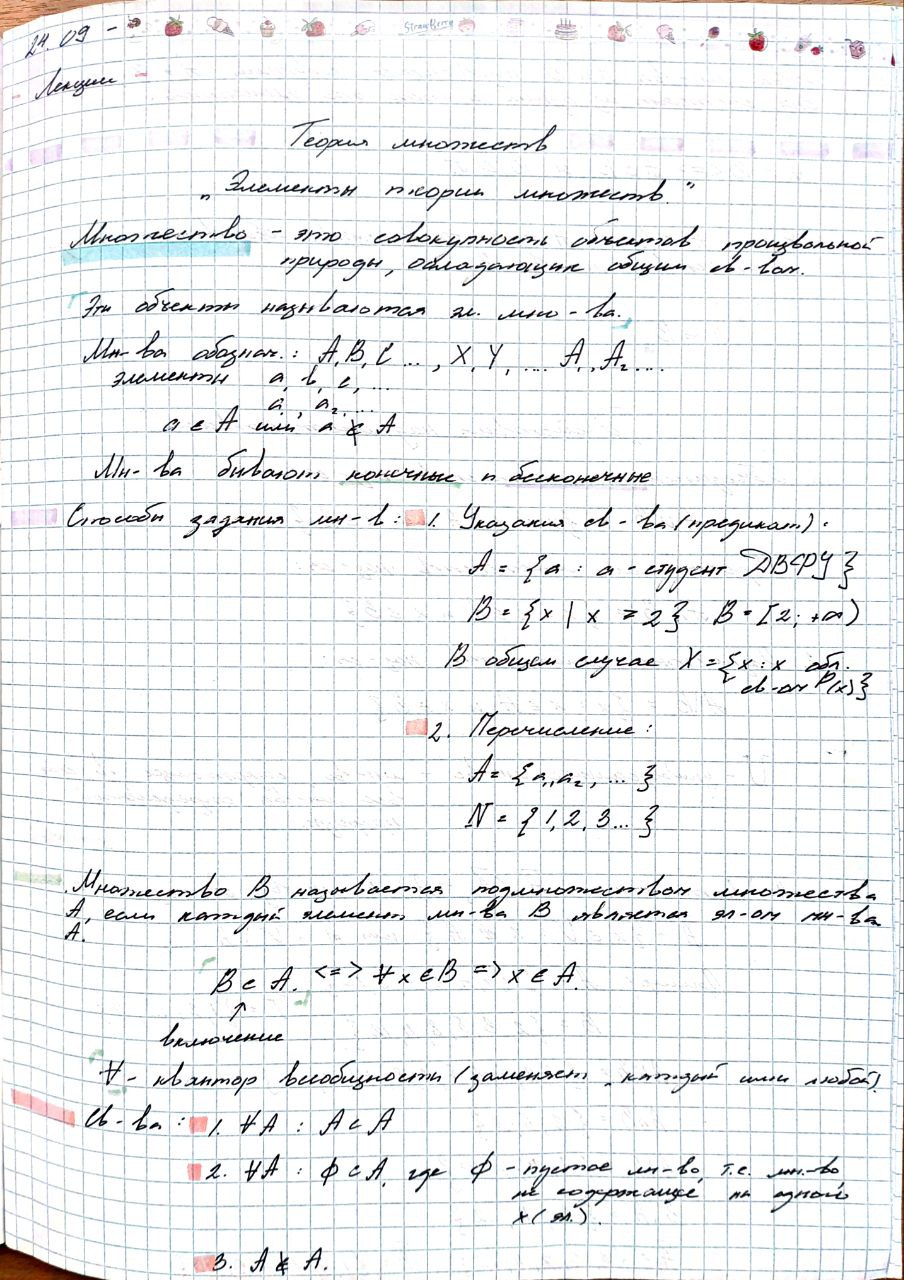 24.09 -
StrawBerry
Лекции
Теория множеств
„Элементы теории множеств."
Множество - это совокупность объектов произвольной
природы, обладающих общим св-вом.
Эти объекты называются эл. мно-ва.
Мн-ва обознач.: A, B, C ..., X, Y, .... A₁, A₂ ....
элементы a, b, c, ...
a₁, a₂, ...
a ∈ A или a ∉ A
Мн-ва бывают конечные и бесконечные
Способы задания мн-в: 1. Указания св-ва (предикат):
A = {a : a - студент ДВФУ}
B = {x | x ≥ 2} B = [2; +∞)
В общем случае X = {x : x обл.
св-ом P(x)}
2. Перечисление:
A = {a₁, a₂, ... }
N = {1, 2, 3... }
Множество B называется подмножеством множества
A, если каждый элемент мн-ва B является эл-ом мн-ва
A.
B ⊂ A. <=> ∀ x ∈ B => x ∈ A.
↑
включение
∀ - квантор всеобщности (заменяет „каждый или любой)
Св-ва: 1. ∀A : A ⊂ A
2. ∀A : ∅ ⊂ A, где ∅ - пустое мн-во, т.е. мн-во
не содержащее ни одного
x (эл.).
3. A ∉ A.